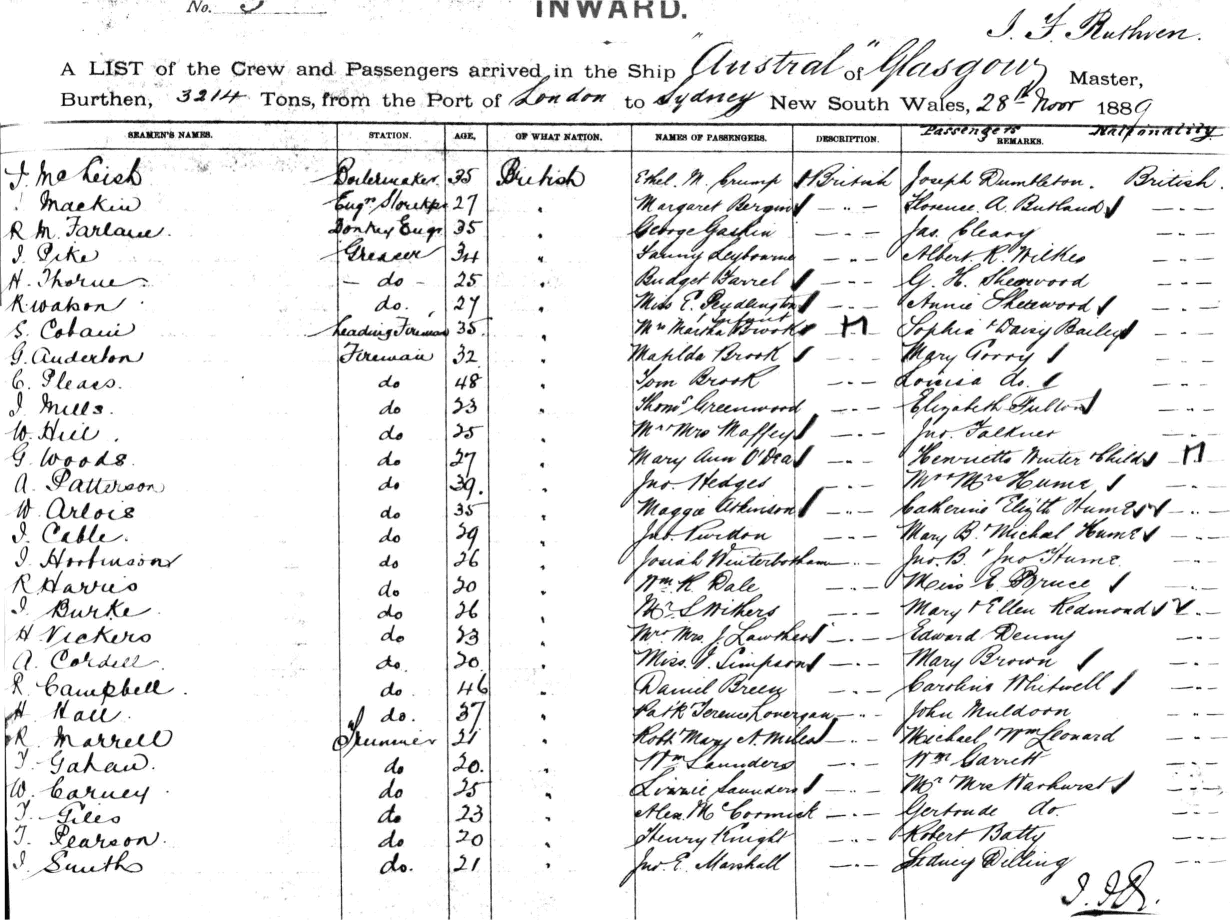 No. 3
INWARD.
J. F. Ruthven.
A LIST of the Crew and Passengers arrived in the Ship "Austral" of Glasgow Master,
Burthen, 3214 Tons, from the Port of London to Sydney New South Wales, 28th Novr 1889
SEAMEN'S NAMES. STATION. AGE, OF WHAT NATION. NAMES OF PASSENGERS. DESCRIPTION. Passengers REMARKS. Nationality
J. McLeish Boilermaker. 35 British Ethel M. Crump British Joseph Dumbleton. British.
Mackie Engrs Storekpr 27 " Margaret Bergin - " - Florence A. Butland - " -
R. M. Farlane Donkey Engr 35 " George Gaskin Jas. Cleary - " -
J. Pike Greaser 34 " Fanny Leybourne - " - Albert R. Wilkes - " -
H. Thorne - do - 25 " Bridget Farrel - " - G. H. Sherwood - " -
R Watson do. 27 " Miss E. - " - Annie Sherwood - " -
S. Leading Fireman 35. " Mrs Martha Brook & Infant - " - Sophia & Daisy Bailey - " -
G. Anderton Fireman 32 " Matilda Brook - " - Mary Gorry - " -
C. Pleass. do 48 " Tom Brook - " - Louisa do. - " -
J. Mills. do 23 " Thoms Greenwood - " - Elizabeth Fulton - " -
W. Hill. do 25 " Mr & Mrs Maffey - " - Jno. Falkner - " -
G. Woods. do 27 " Mary Ann O'Dea - " - Henrietta Winter & Child
A. Patterson do 39. " Jno. Hedges - " - Mr & Mrs Hume - " -
W. do 35 " Maggie Atkinson - " - Catherine & Elizth Hume - " -
J. Cable. do 29 " Jno. Purdon - " - Mary B. & Michal Hume - " -
J. do 26 " Josiah Winterbotham - " - Jno. B. & Jno Hume. - " -
R Harris do 20 " Wm. R. Dale - " - Miss E. Bruce - " -
J. Burke. do 26 " Mr. S Withers - " - Mary & Ellen Redmond - " -
H Vickers do 23 " Mr & Mrs. J. Lawther - " - Edward Denny - " -
A. Cordell. do. 20. " Miss. J. Simpson - " - Mary Brown - " -
R. Campbell. do. 46 " Daniel Breen - " - Caroline Whitwell - " -
H. Hall. do. 37 " Patk Terence Lonergan - " - John Muldoon - " -
R. Morrell Trimmer 21 " Robt & Mary A. Miles - " - Michael & Wm Leonard - " -
T. Gahan. do 20. " Wm Saunders - " - Wm Garrett - " -
W. Carney. do 25 " Lizzie Saunders - " - Mr & Mrs Warhurst - " -
T. Giles do 23 " Alex. McCormick - " - Gertrude do. - " -
T. Pearson. do 20 " Henry Knight - " - Robert Batty - " -
J. Smith do. 21 " Jno. E. Marshall - " - Sidney Dilling - " -
J. F. R.